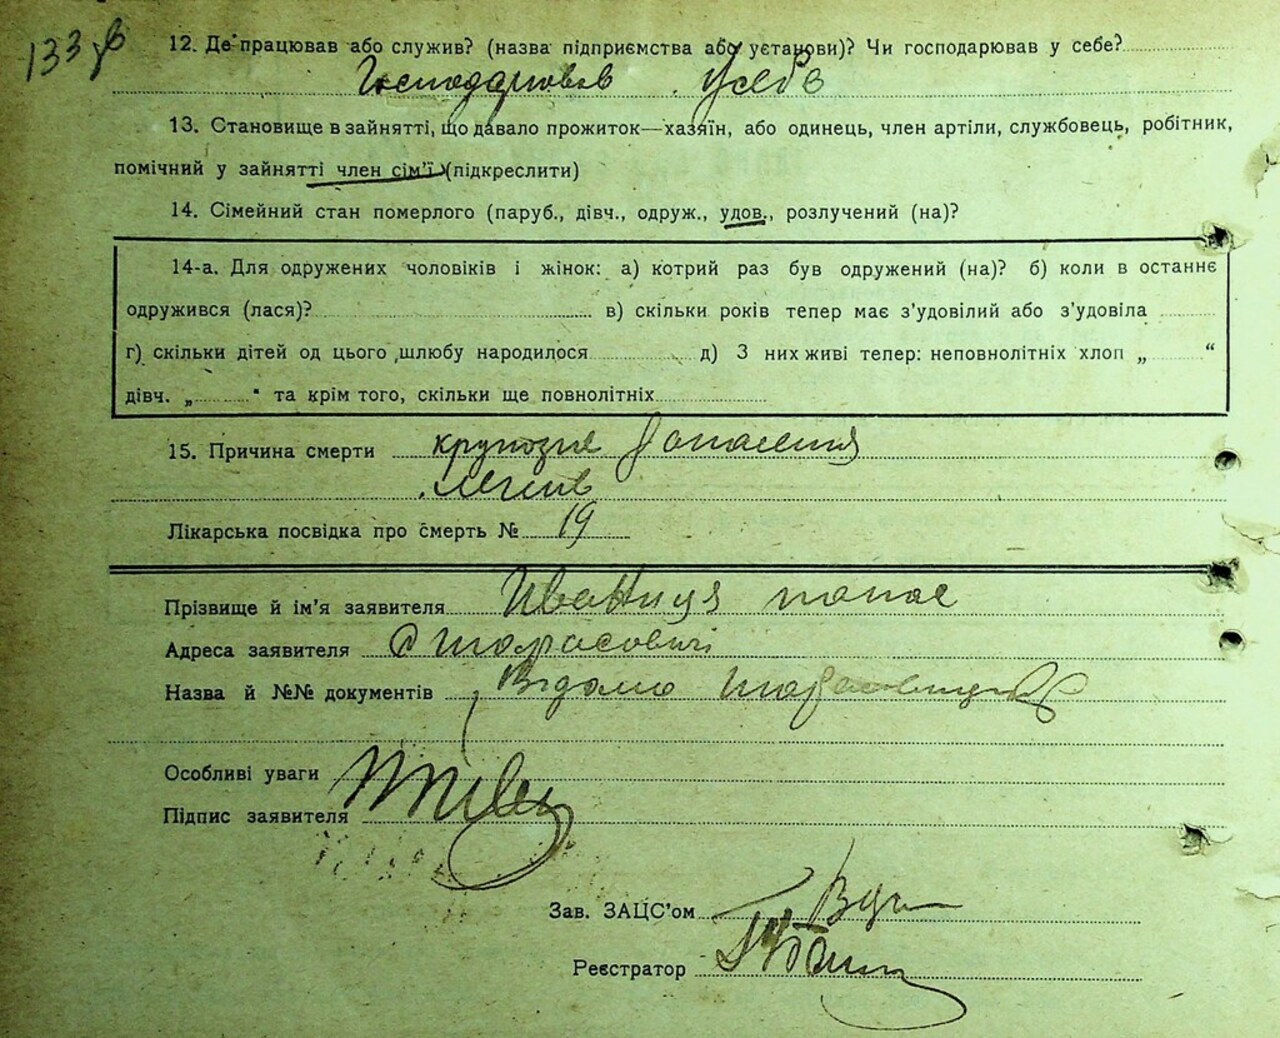 133
12. Де працював або служив? (назва підприємства або установи)? Чи господарював у себе?
Господарював у себе
13. Становище в зайнятті, що давало прожиток—хазяїн, або одинець, член артілі, службовець, робітник,
помічний у зайнятті член сім'ї (підкреслити)
14. Сімейний стан померлого (паруб., дівч., одруж., удов., розлучений (на)?
14-а. Для одружених чоловіків і жінок: а) котрий раз був одружений (на)? б) коли в останнє
одружився (лася)? в) скільки років тепер має з'удовілий або з'удовіла
г) скільки дітей од цього шлюбу народилося д) З них живі тепер: неповнолітніх хлоп „ “
дівч. „ “ та крім того, скільки ще повнолітніх
15. Причина смерти крупозне запалення
легенів
Лікарська посвідка про смерть № 19
Прізвище й ім'я заявителя Іваниця Панас
Адреса заявителя с Тарасовичі
Назва й №№ документів Відомо
Особливі уваги
Підпис заявителя
Зав. ЗАЦС'ом
Реєстратор